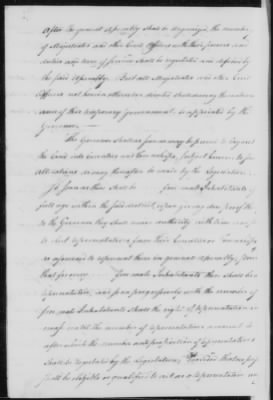 After the general assembly shall be organized, the number
of Magistrates and other Civil Officers with their powers and
duties and term of service shall be regulated and defined by
the said Assembly. But all Magistrates and other Civil
Officers not herein otherwise directed shall during the continu
ance of this temporary government, be appointed by the
Governor
The Governor shall as soon as may be proceed to lay out
subject however to future
alterations as may thereafter be made by the Legislature
So soon as there shall be free male Inhabitants of
full age within the said district, upon giving due proof thereof
to the Governor they shall receive authority with time and place
to elect representatives from their Counties or Townships
as aforesaid to represent them in general assembly, provided
that for every free male Inhabitants there shall be one
representative, and so on progressively with the number of
free male Inhabitants shall the right of representation
encrease until the number of representatives amount to
after which the number and proportion of representatives
shall be regulated by the Legislature; Provided that no person
shall be eligible or qualified to act as a representative